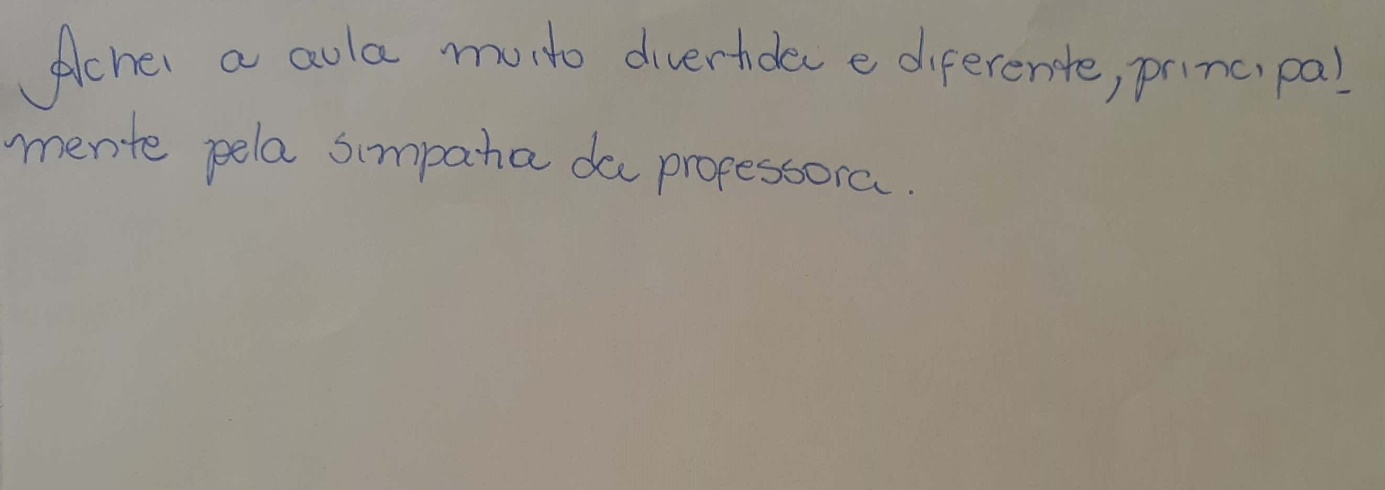 Achei a aula muito divertida e diferente, principal-
mente pela simpatia da professora.